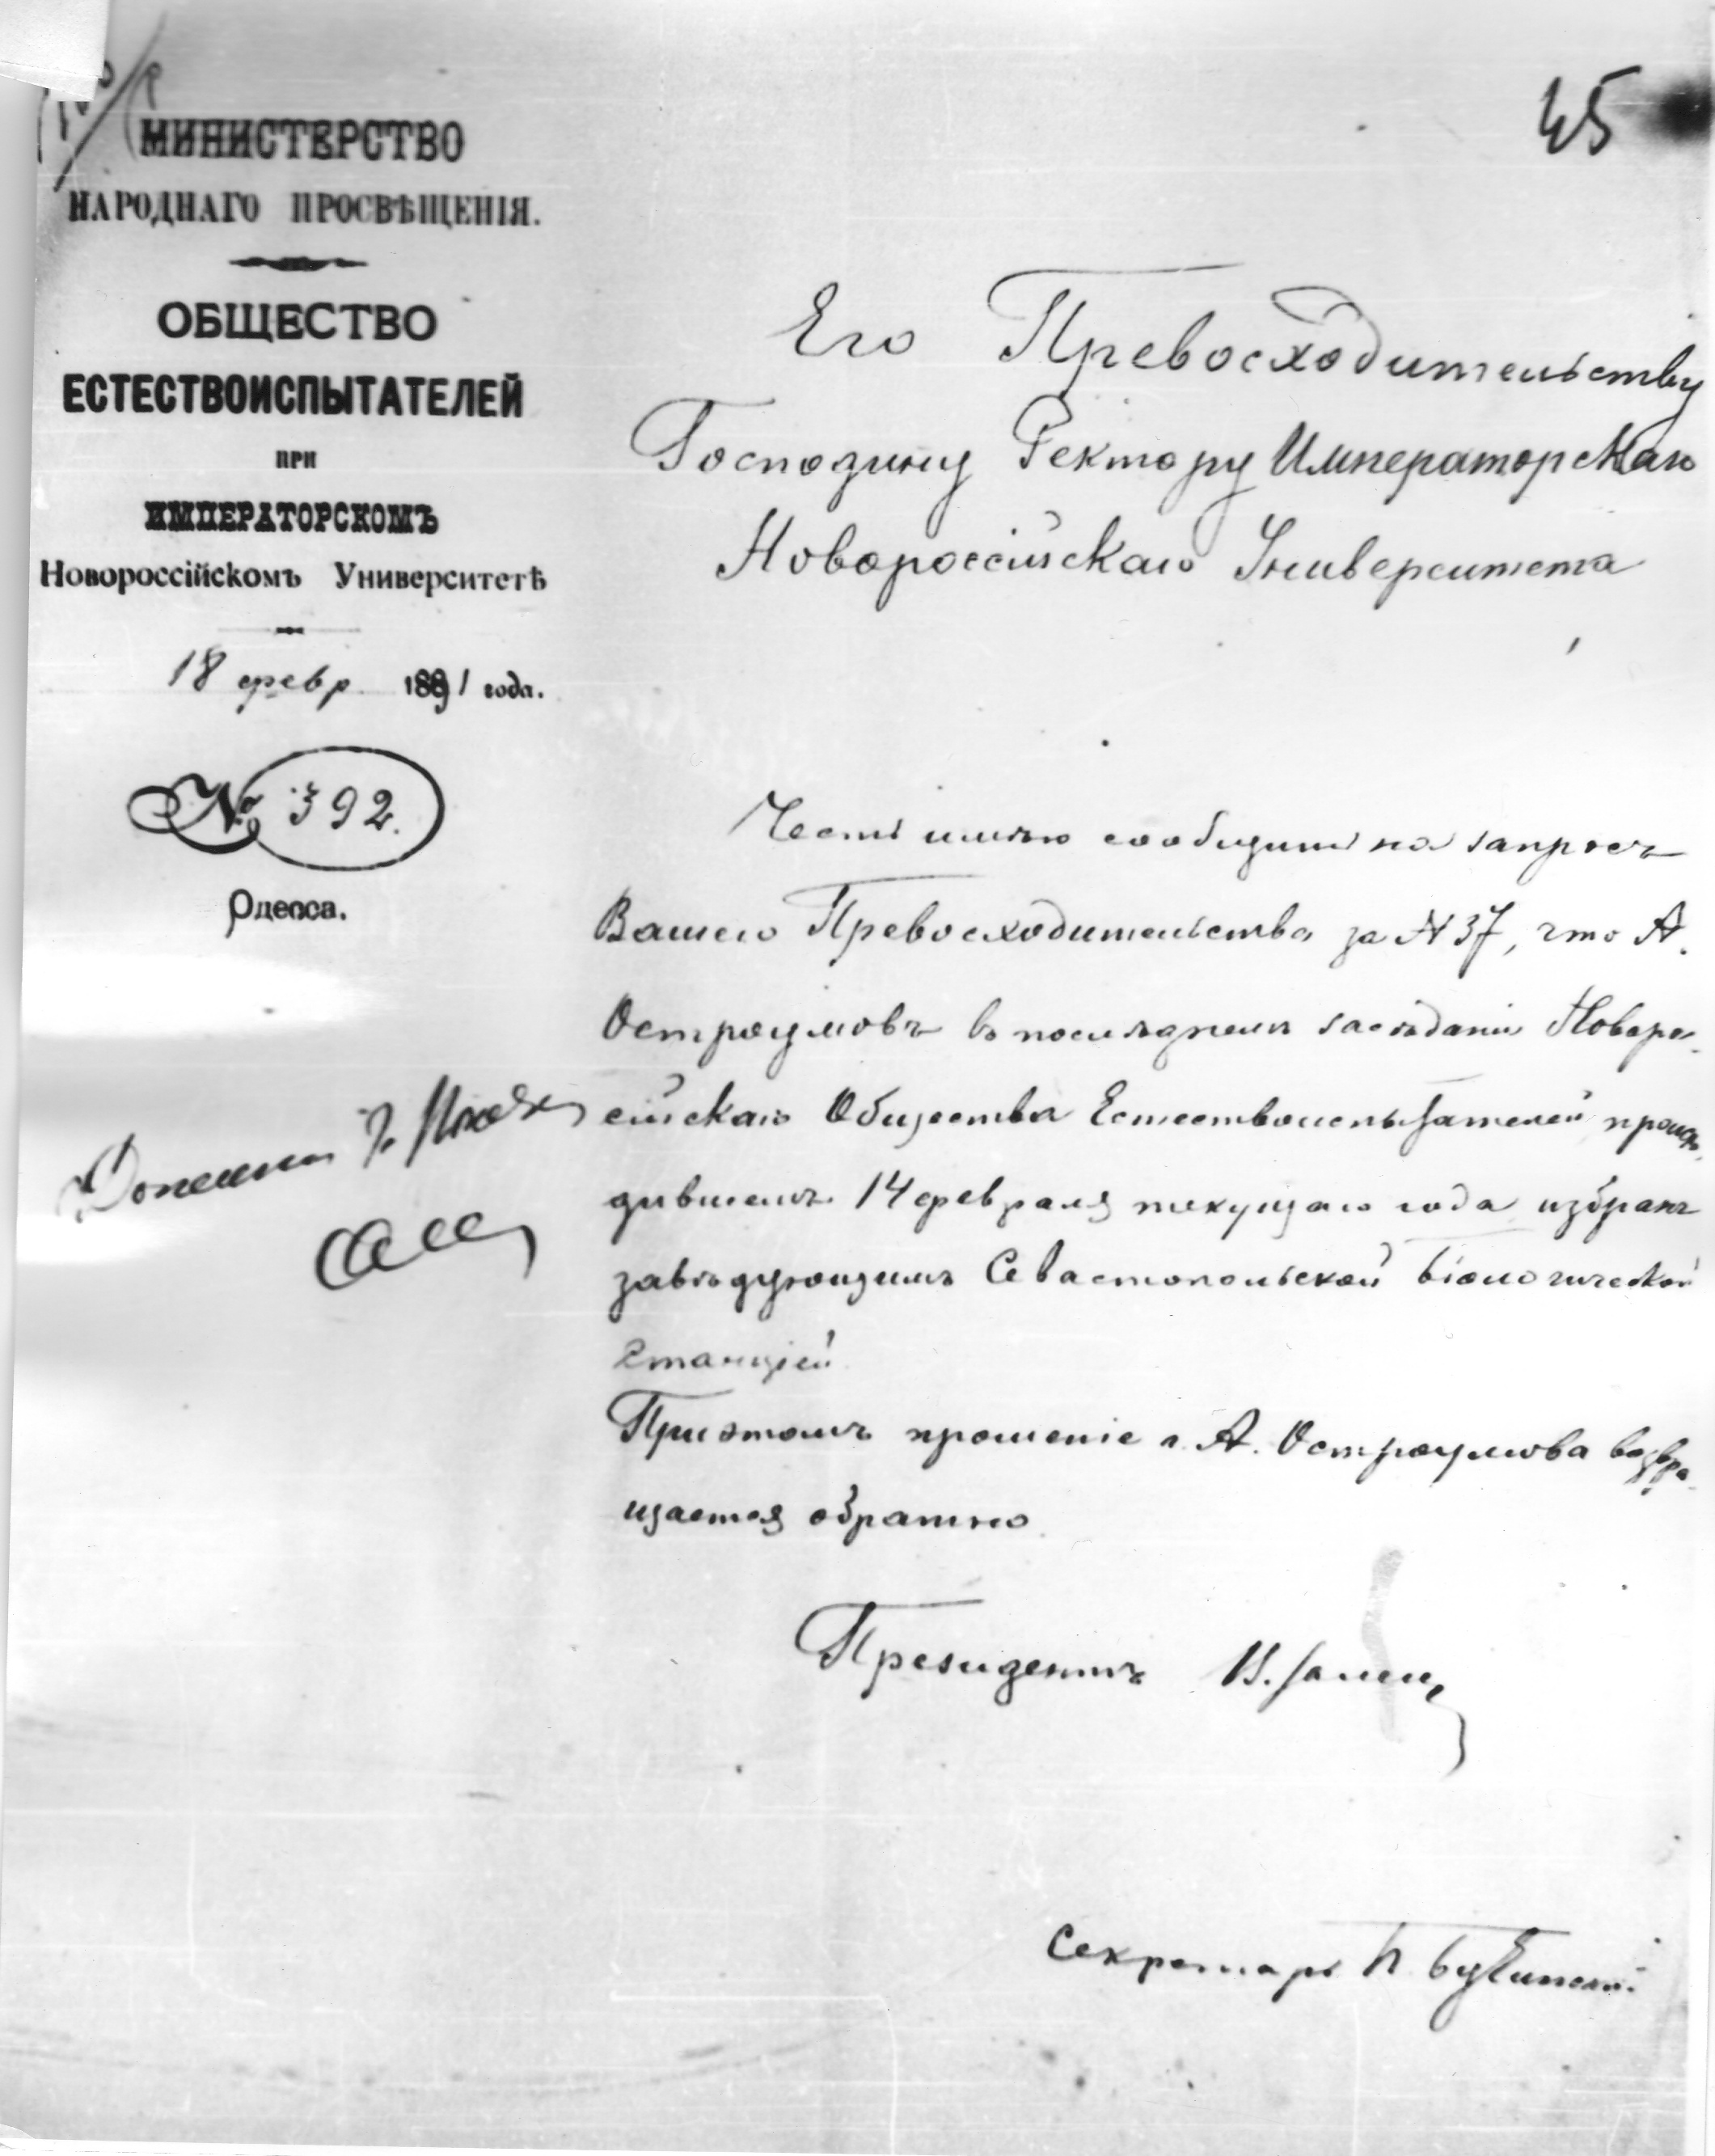 45
МИНИСТЕРСТВО
НАРОДНАГО ПРОСВѢЩЕНІЯ.
ОБЩЕСТВО
ЕСТЕСТВОИСПЫТАТЕЛЕЙ
ПРИ
ИМПЕРАТОРСКОМЪ
Новороссійскомъ Университетѣ
18 февр. 1891 года.
№ 392.
Одесса.
Его Превосходительству
Господину Ректору Императорскаго
Новороссійскаго Университета
Честь имѣю сообщить на запросъ
Вашего Превосходительства за № 37, что А.
Остроумовъ въ послѣднемъ засѣданіи Новоро-
сійскаго Общества Естествоиспытателей происхо-
дившемъ 14 февраля текущаго года избранъ
завѣдующимъ Севастопольской Біологической
Станціей.
При этомъ прошеніе г. А. Остроумова возвра-
щается обратно.
Президентъ В. Залең
Секретарь П. Бучинскій